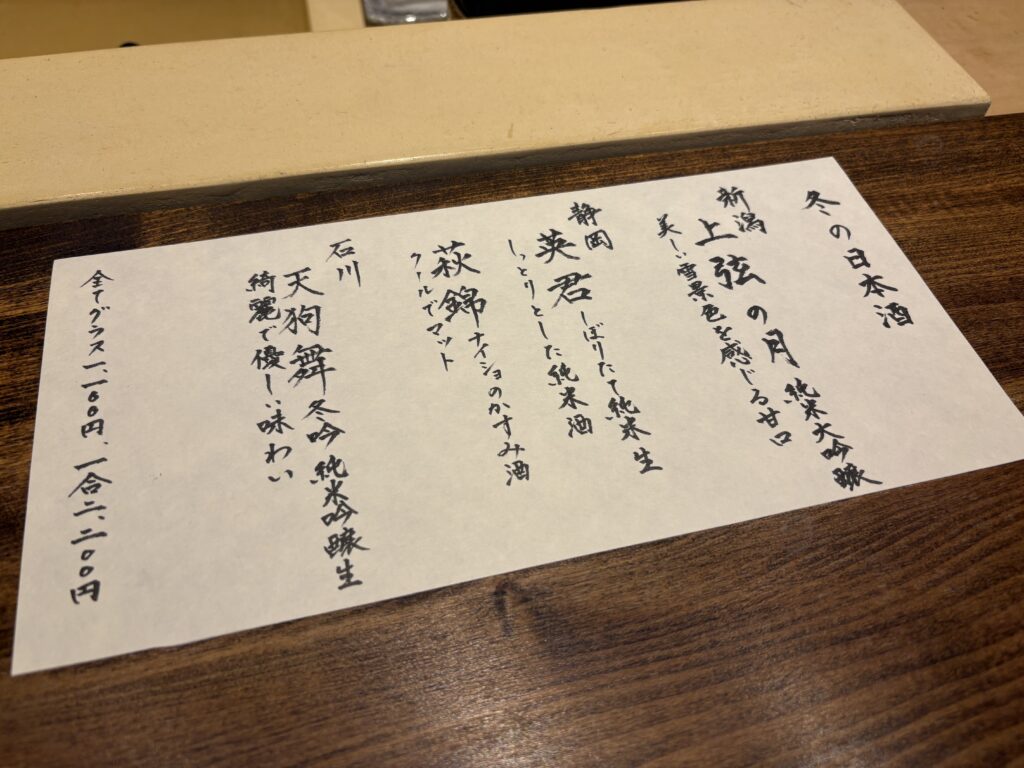 冬の日本酒
新潟
上弦の月 純米大吟醸
美しい雪景色を感じる甘口
静岡
英君 しぼりたて純米生
しっとりとした純米酒
萩錦 ナイショのかすみ酒
クールでマット
石川
天狗舞 冬吟 純米吟醸生
綺麗で優しい味わい
全てグラス一、一〇〇円、一合二、二〇〇円